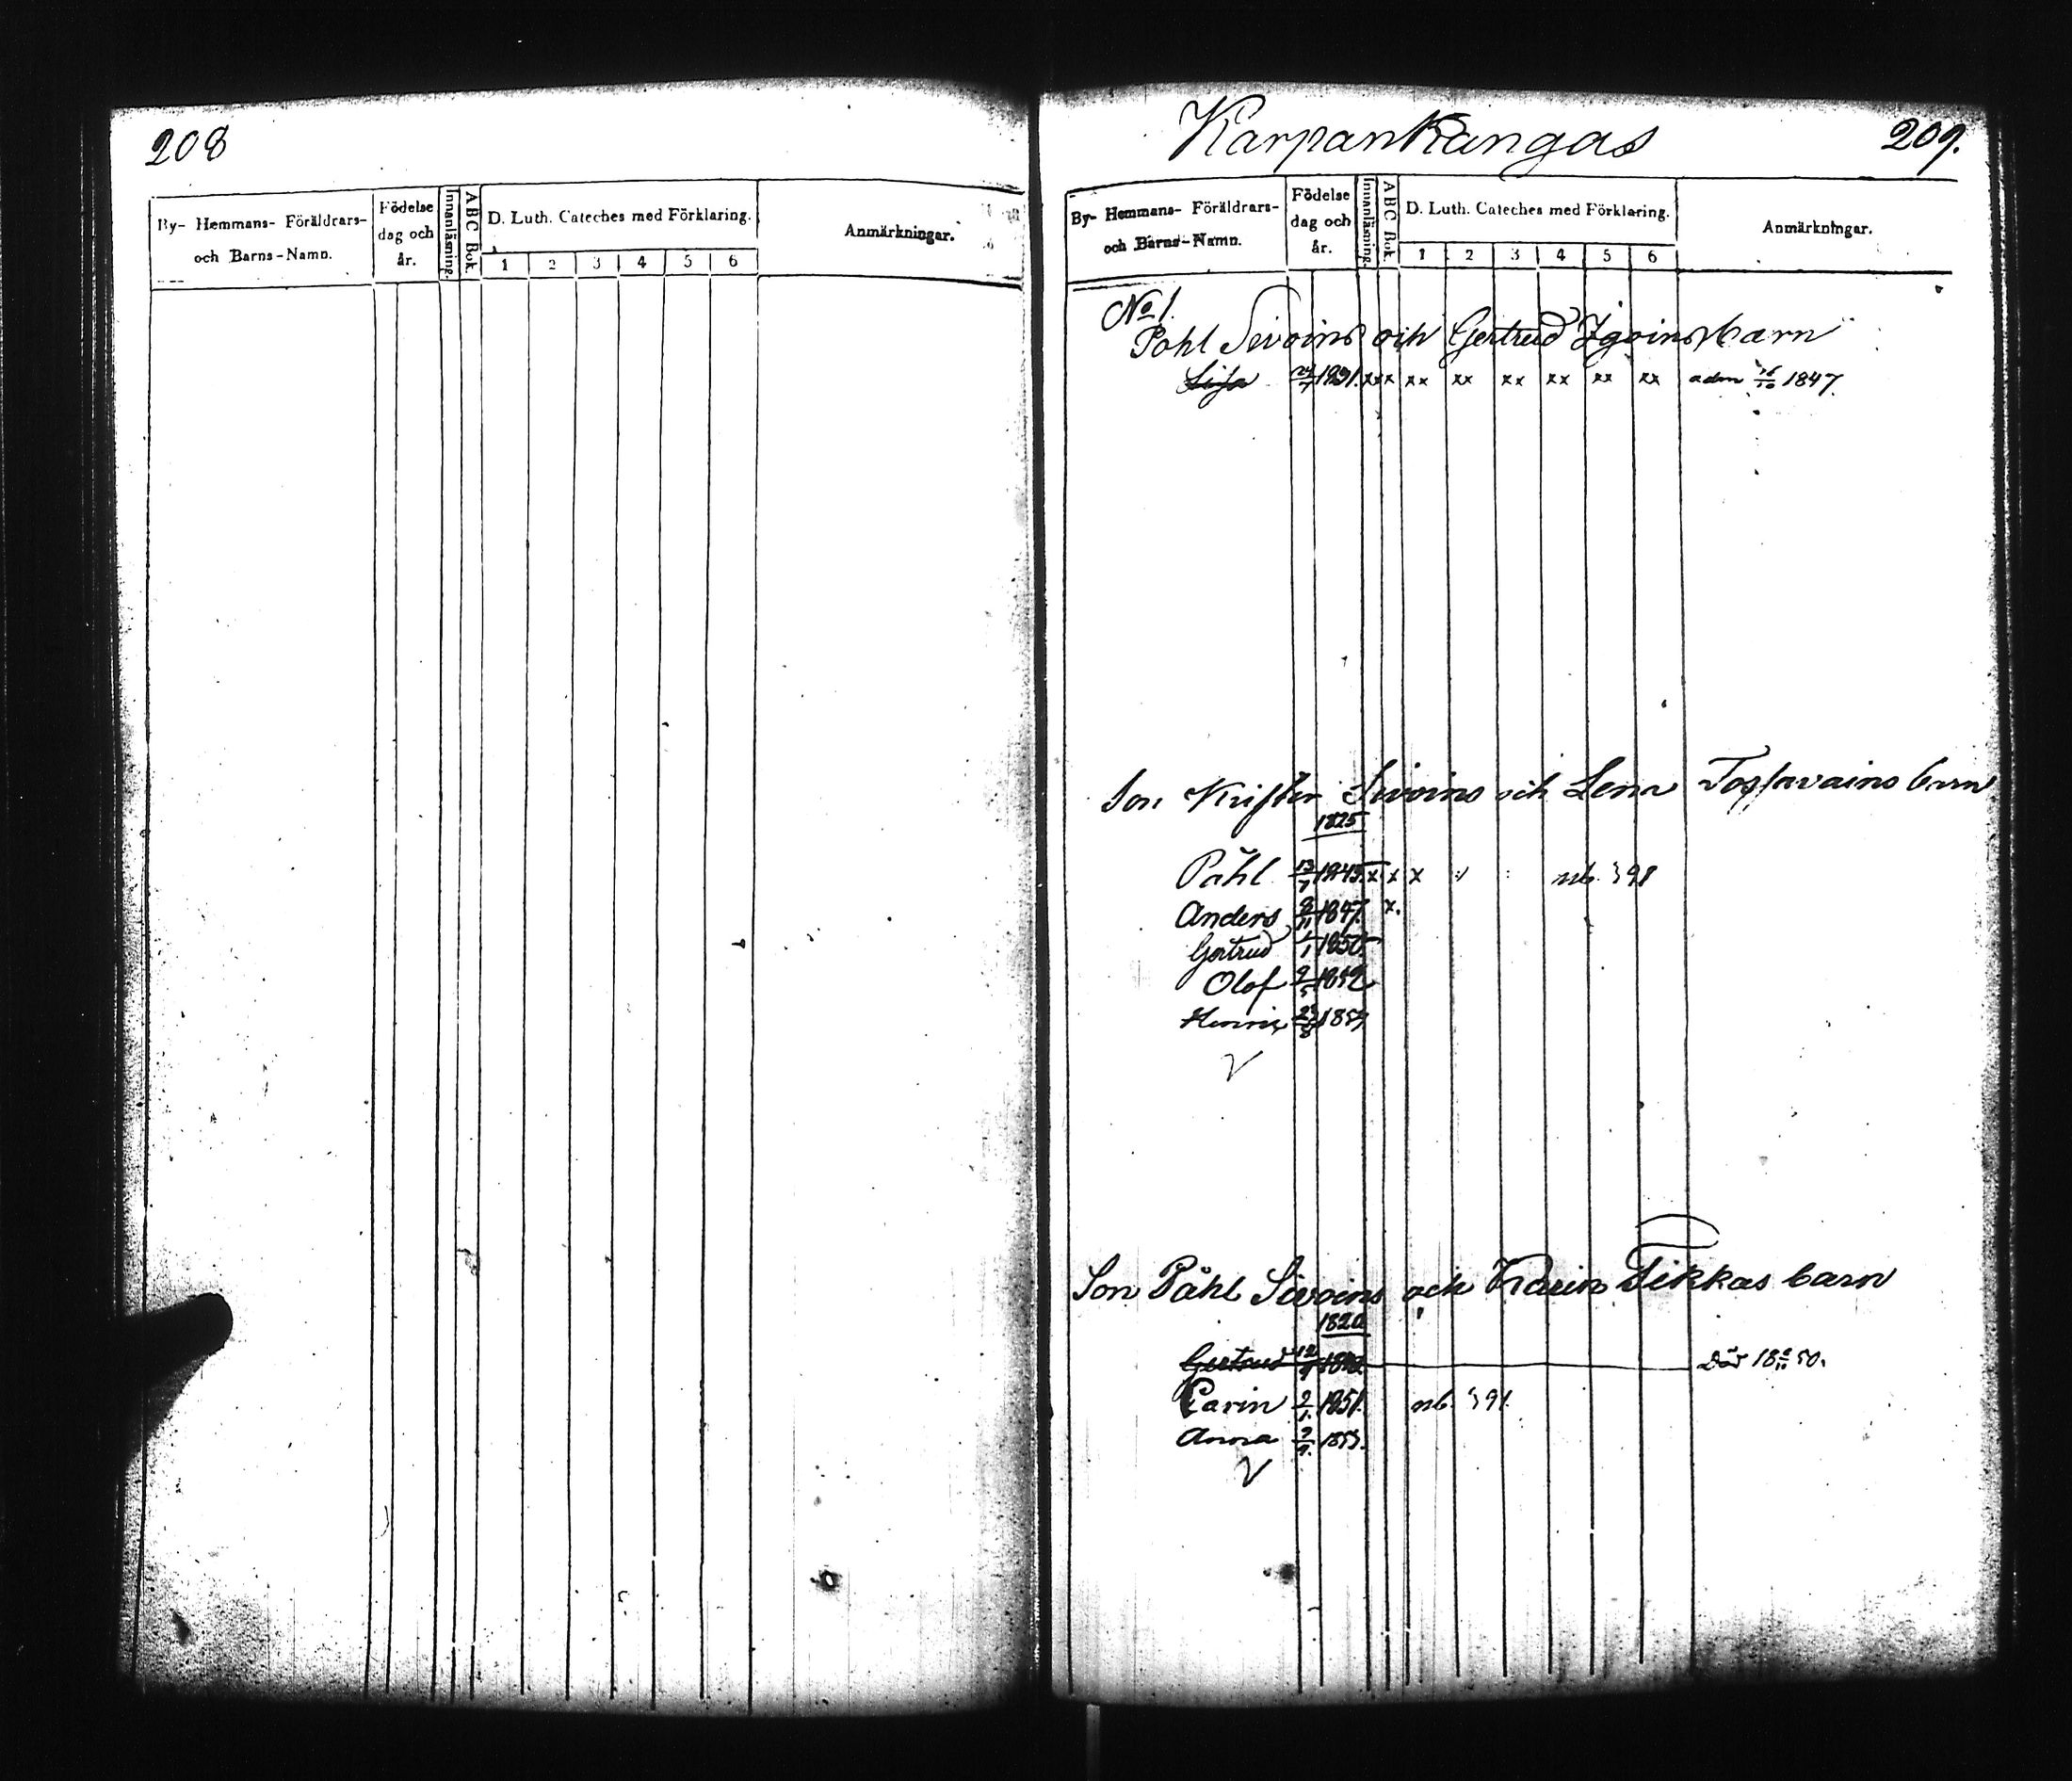 208
By- Hemmans- Föräldrars-
och Barns-Namn.
Födelse
dag och
år.
Innanläsning.
ABC Bok.
D. Luth. Cateches med Förklaring.
1 2 3 4 5 6
Anmärkningar.
Karpankangas 209.
By- Hemmans- Föräldrars-
och Barns-Namn.
Födelse
dag och
år.
Innanläsning.
ABC Bok.
D. Luth. Cateches med Förklaring.
1 2 3 4 5 6
Anmärkningar.
No 1.
Pohl Sivoins och Gertrud barn
Lisa xxx xx xx xx xx xx xx adm 1847.
Son Krister Sivoins och Lena Tossavains barn
1825
Påhl 13/7 1845. x x x nb. 91
Anders 8/11 1847. x.
Gertrud 1/1 1850.
Olof 9/5 1852
Henric 1857
Son Påhl Sivoins och Karin Tikkas barn
1820
Gertrud Död 50.
Carin 2/1. 1851. nb. 91.
Anna